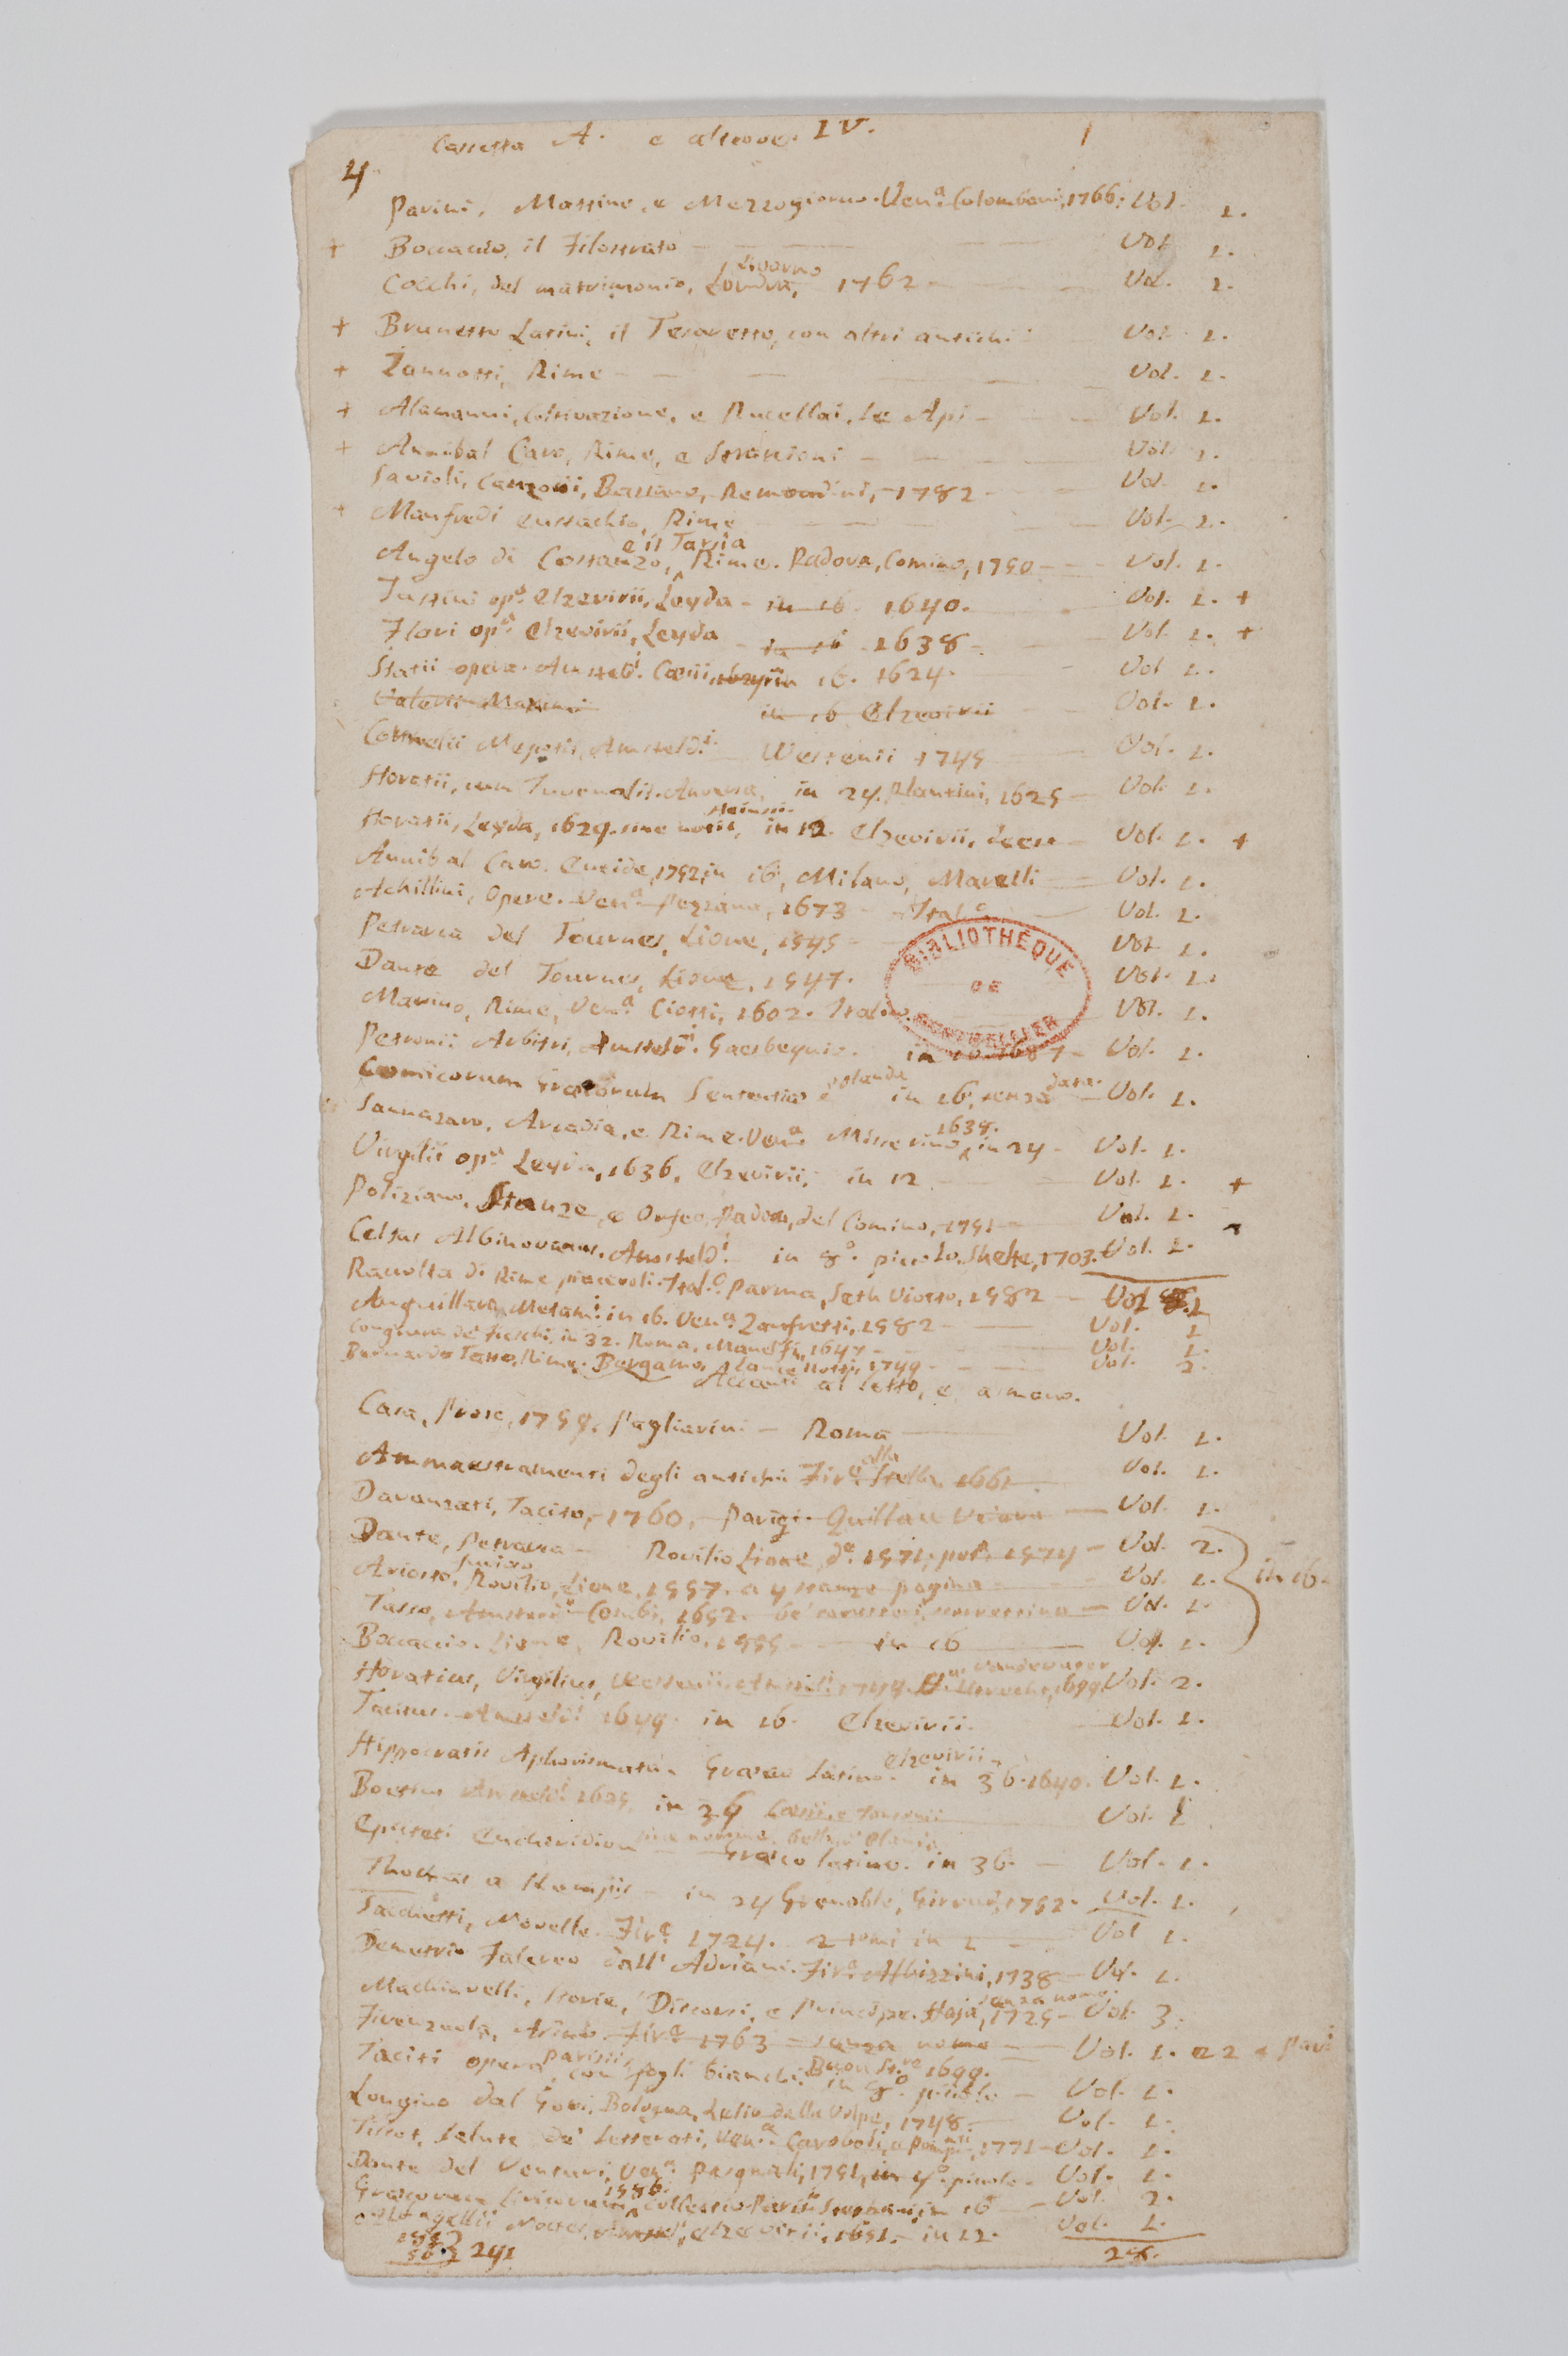 Cassetta A. e altrove. IV.
4
Parini, Mattino, e Mezzogiorno. Ven.a Colombani, 1766. Vol. 1.
+ Boccaccio, il Filostrato — Vol. 1.
Cocchi, del matrimonio, Londra, Livorno 1762 — Vol. 1.
+ Brunetto Latini, il Tesoretto, con altri antichi Vol. 1.
+ Zannotti, Rime — Vol. 1.
+ Alamanni, Coltivazione, e Rucellai, le Api — Vol. 1.
+ Annibal Caro, Rime, e Straccioni — Vol. 1.
Savioli, Canzoni, Bassano, Remondini, 1782 — Vol. 1.
+ Manfredi Eustachio, Rime — Vol. 1.
e il Tarsia
Angelo di Costanzo, Rime. Padova, Comino, 1750 — Vol. 1.
Justini op.a Elzevirii, Leyda — in 16. 1640. Vol. 1. +
Flori op.a Elzevirii, Leyda — in 16. 1638 — Vol. 1. +
Statii opera. Amsteld.i Caesii, in 16. 1624. Vol. 1.
Valerii Maximi in 16 Elzevirii — Vol. 1.
Cornelii Nepotis, Amsteld.i Westenii 1745 — Vol. 1.
Horatii, cum Juvenalis. Anversa, in 24. Plantini, 1625 — Vol. 1.
Heinsii.
Horatii, Leyda, 1629. sine notis, in 12. Elzevirii, — Vol. 1. +
Annibal Caro. Eneide, 1752, in 16, Milano, Marelli — Vol. 1.
Achillini, Opere. Ven.a Pezzana, 1673 — Vol. 1.
Petrarca del Tournes, Lione, 1545 — Vol. 1.
BIBLIOTHÈQUE DE MONTPELLIER
Dante del Tournes, Lione, 1547. Vol. 1.
Marino, Rime, Ven.a Ciotti, 1602. Vol. 1.
Petronii Arbitri, Amstelod.i Gaesbequio. in Vol. 1.
Comicorum Graecorum Sententiae Olanda in 16, senza data. — Vol. 1.
Sannazaro, Arcadia, e Rime. Ven.a Misserino, 1638. in 24 — Vol. 1.
Virgilii op.a Leyda, 1636. Elzevirii, in 12 Vol. 1. +
Poliziano, Stanze, e Orfeo, Padova, del Comino, 1751 — Vol. 1.
Celsus Albinovanus. Amsteld.i in 8.o piccolo. 1703. Vol. 1.
Raccolta di Rime piacevoli. Parma, Seth Viotto, 1582 — Vol.
Anguillara Metam.i in 16. Ven.a Zanfretti, 1582 — Vol. 1
Congiura de' Fieschi, in 32. Roma, 1647 — Vol. 1.
Bernardo Tasso, Rime. Bergamo, Lancellotti, 1749 — Vol. 2.
Accanto al letto, e a mano.
Casa, Prose, 1759. Pagliarini — Roma — Vol. 1.
Ammaestramenti degli antichi Fir.e alla Stella 1661 Vol. 1.
Davanzati, Tacito, 1760, — Parigi. Quillau — Vol. 1.
Dante, Petrarca — Rovilio Lione, D.e 1571, pet.a 1574 — Vol. 2.
Ariosto, Rovilio, Lione, 1557. a 4 stanze pagina — Vol. 1. in 16.
Tasso, Combi, 1652. — Vol. 1.
Boccaccio. Lione, Rovilio, 1555 — in 16 — Vol. 1.
Horatius, Virgilius, Westenii. 1744. 1699. Vol. 2.
Tacitus. Amsteld.i 1649. in 16. Elzevirii. Vol. 1.
Hippocratis Aphorismata. Graeco Latino. Elzevirii. in 36. 1640. Vol. 1.
Boetius Amsteld.i 1625. in 36 Vol. 1
Epicteti Enchiridion — Graeco latino. in 36. — Vol. 1.
Thomas a Kempis — in 24 Grenoble, 1752. Vol. 1.
Sacchetti, Novelle. Fir.e 1724. 2 tomi in 1 — Vol. 1.
Demetrio Falereo dall' Adriani. Fir.e Albizzini, 1738 — Vol. 1.
Machiavelli, Storie, Discorsi, e Principe. Haja, senza nome. 1725 — Vol. 3.
Firenzuola, Asino. Fir.e 1763 — senza nome — Vol. 1.
Taciti opera, Parisiis, con fogli bianchi. 1699. in 8.o piccolo — Vol. 1.
Longino dal Gori. Bologna, Lelio dalla Volpe, 1748. — Vol. 1.
Tissot, Salute de' Letterati, Ven.a 1771 — Vol. 1.
Dante del Venturi, Ven.a Pasquali, 1751, in 4.o piccolo. Vol. 1.
Graecorum Liricorum, collectio Stephani, in 16 — Vol. 2.
Gellii Noctes, Amsteld.i, Elzevirii, 1651. — in 12. Vol. 1.
241